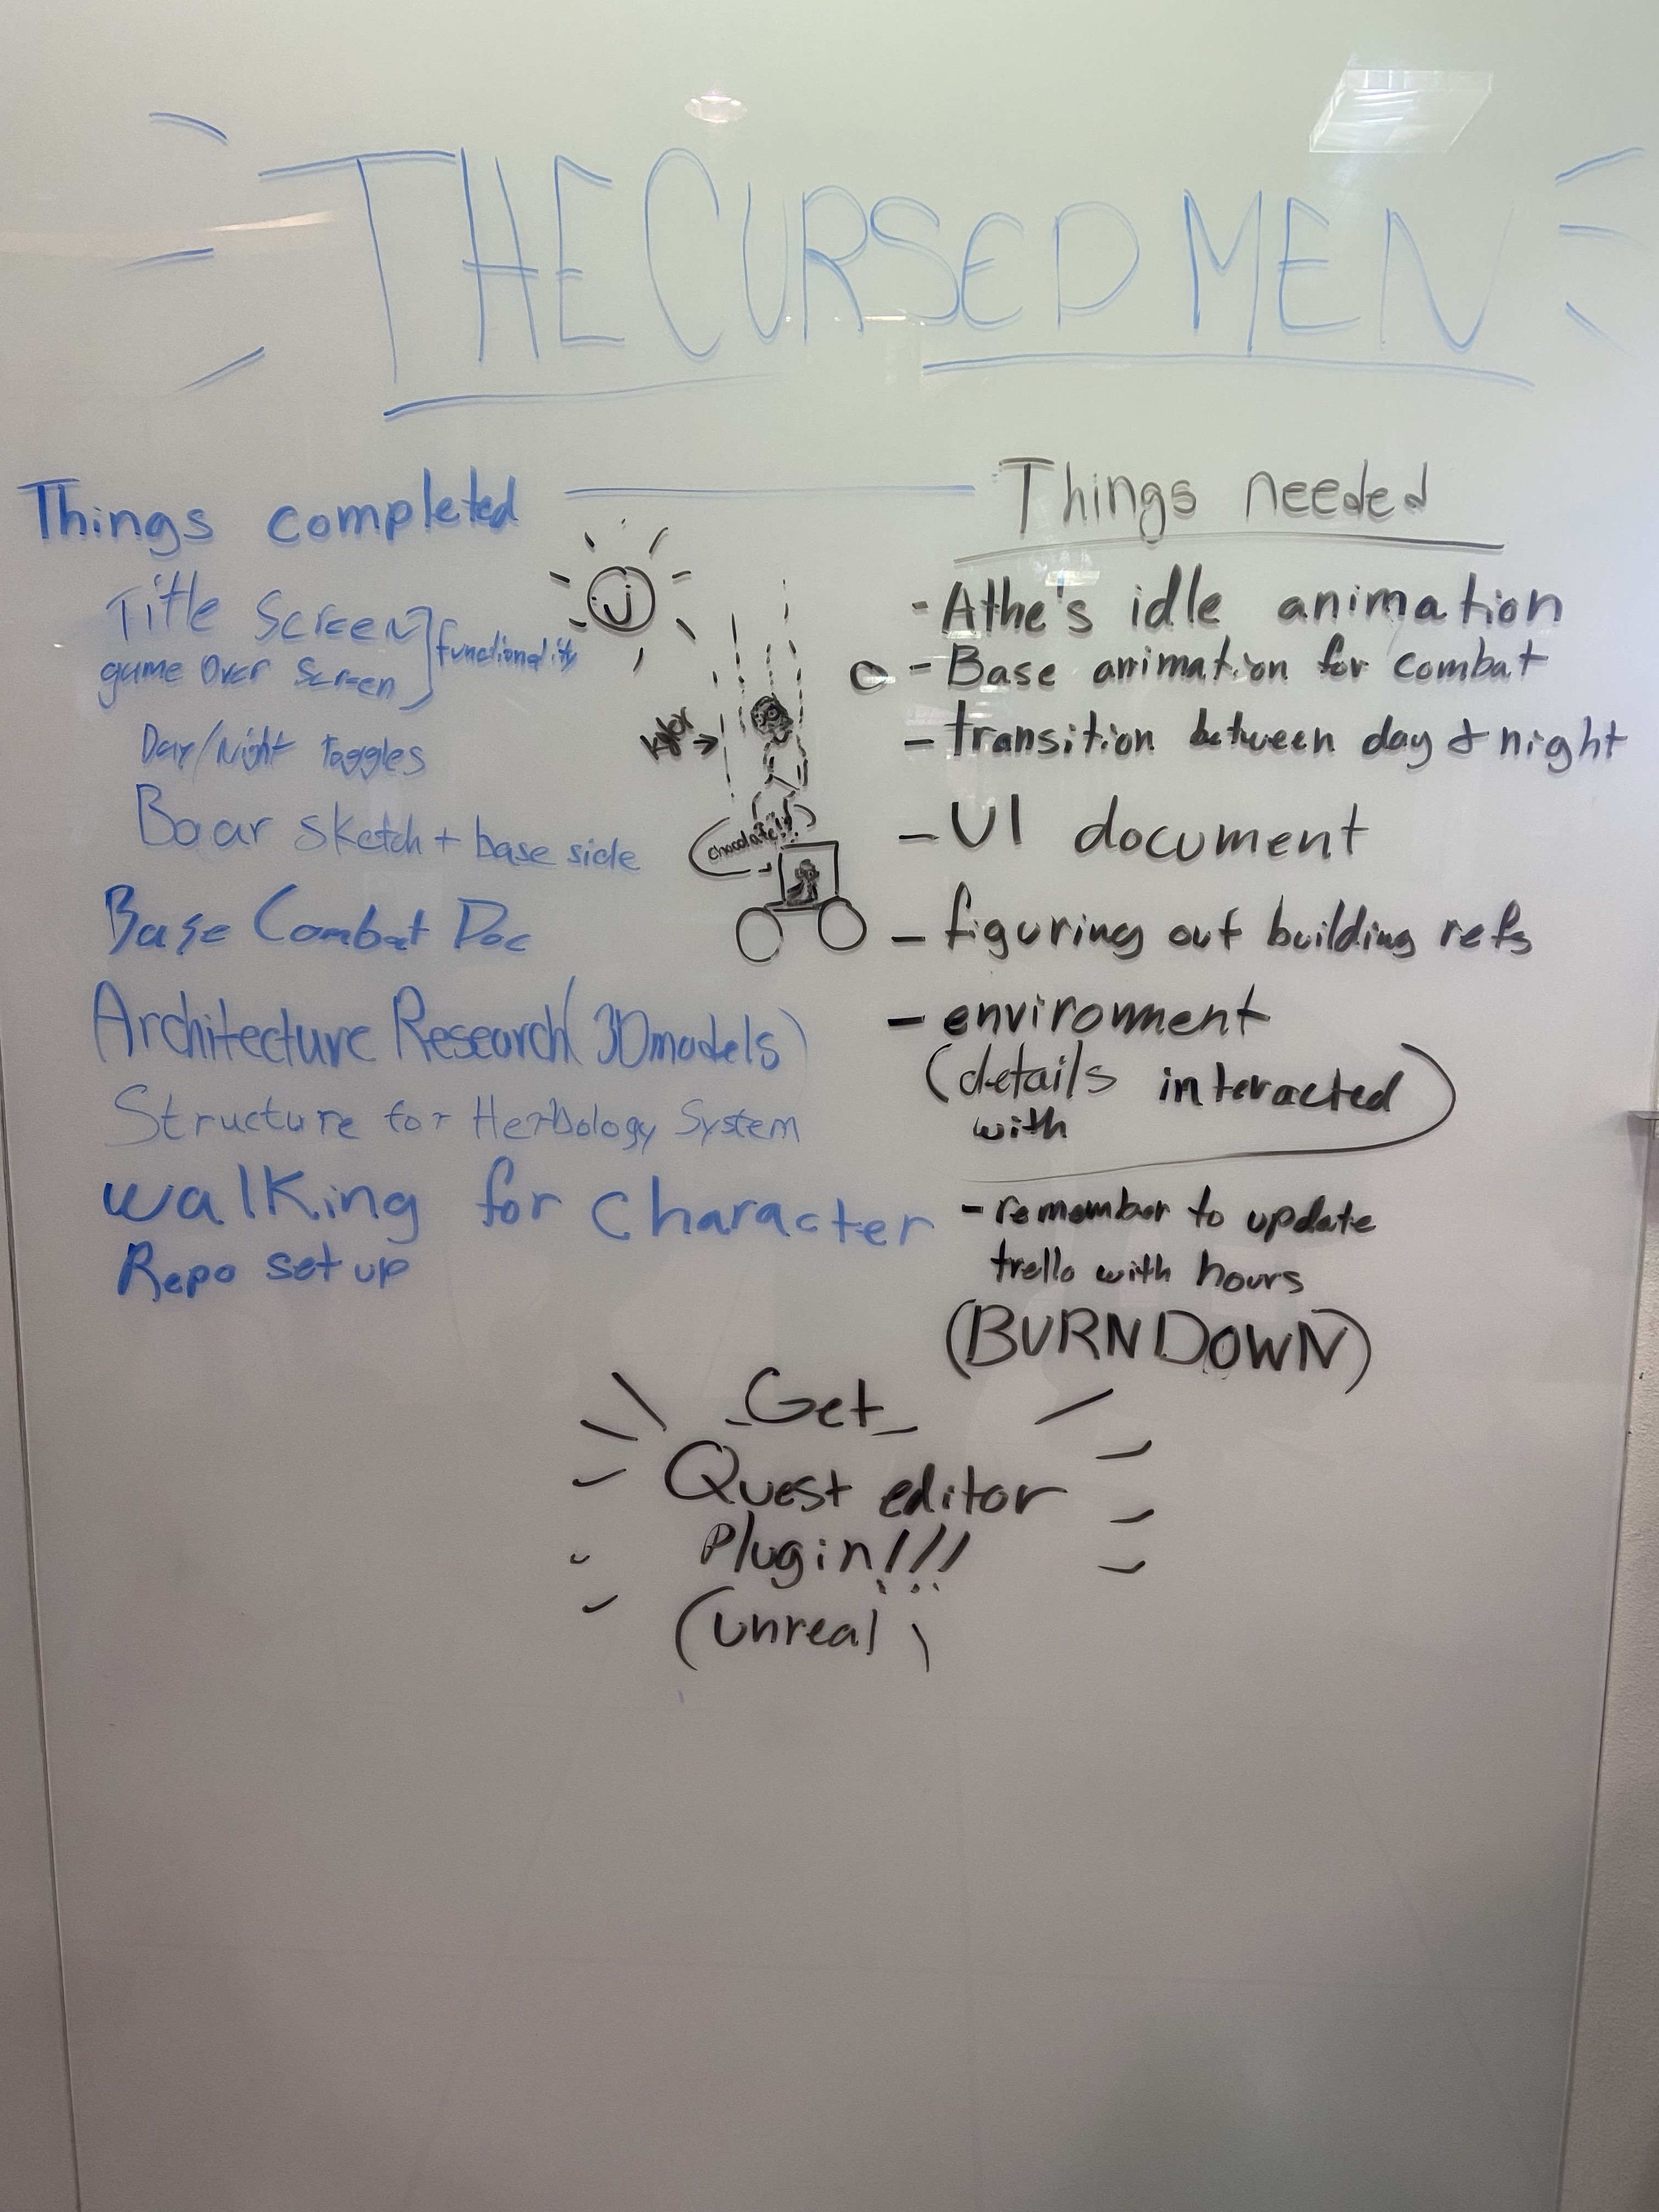 THE CURSED MEN
Things completed
Title Screen
game Over Screen
functionality
Day/Night toggles
Boar sketch + base side
Base Combat Doc
Architecture Research (3D models)
Structure for Herbology System
walking for character
Repo set up
Kylor
chocolate!!?
Things needed
- Athe's idle animation
- Base animation for combat
- transition between day & night
- UI document
- figuring out building refs
- environment
(details interacted
with)
- remember to update
trello with hours
(BURN DOWN)
Get
Quest editor
Plugin!!!
(unreal)